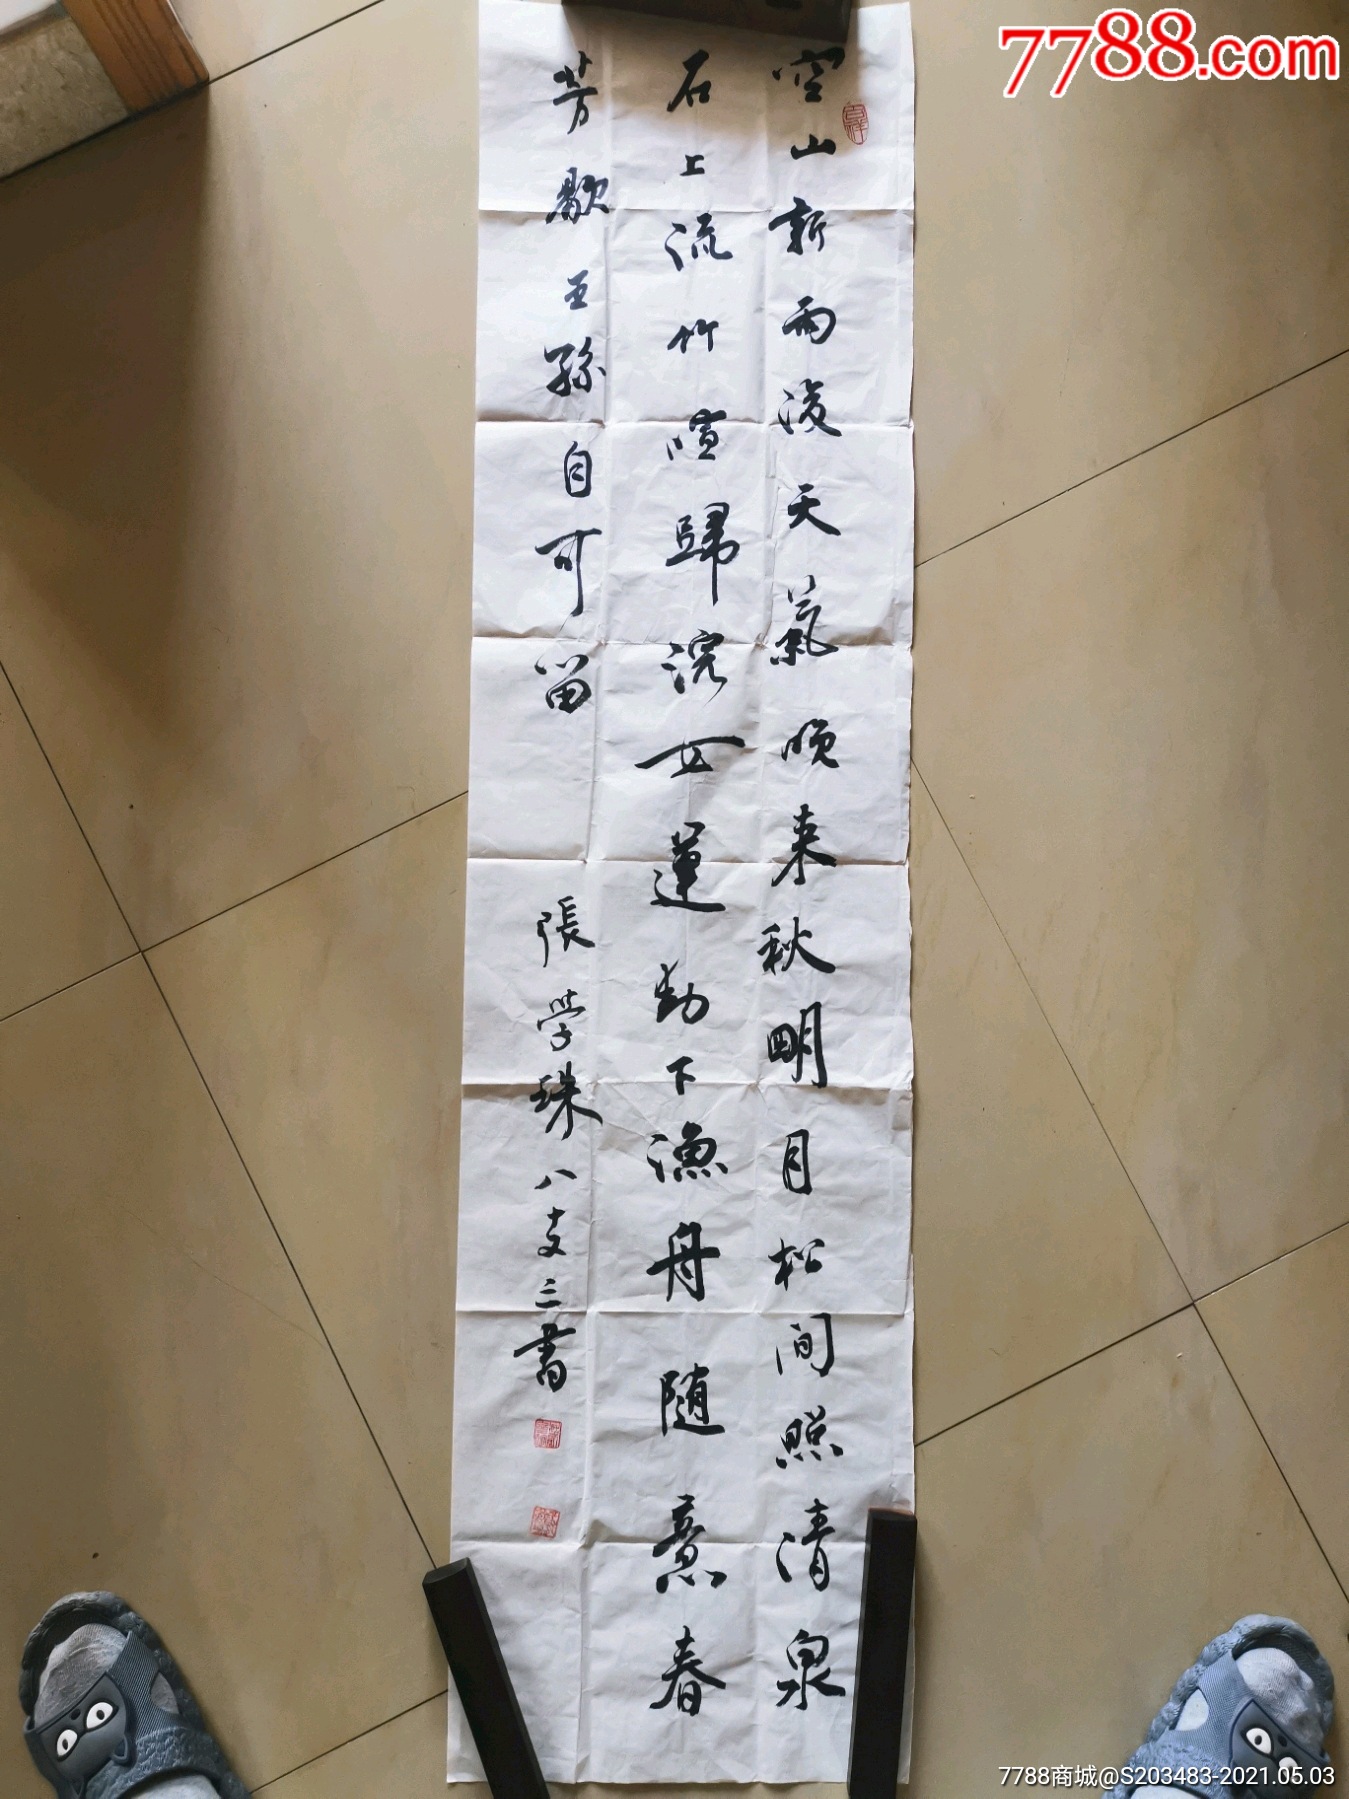 空山新雨後天氣晚来秋明月松间照清泉
石上流竹喧歸浣女蓮動下漁舟随意春
芳歇王孫自可留
張学珠八十又三書
7788.com
7788商城@S203483-2021.05.03